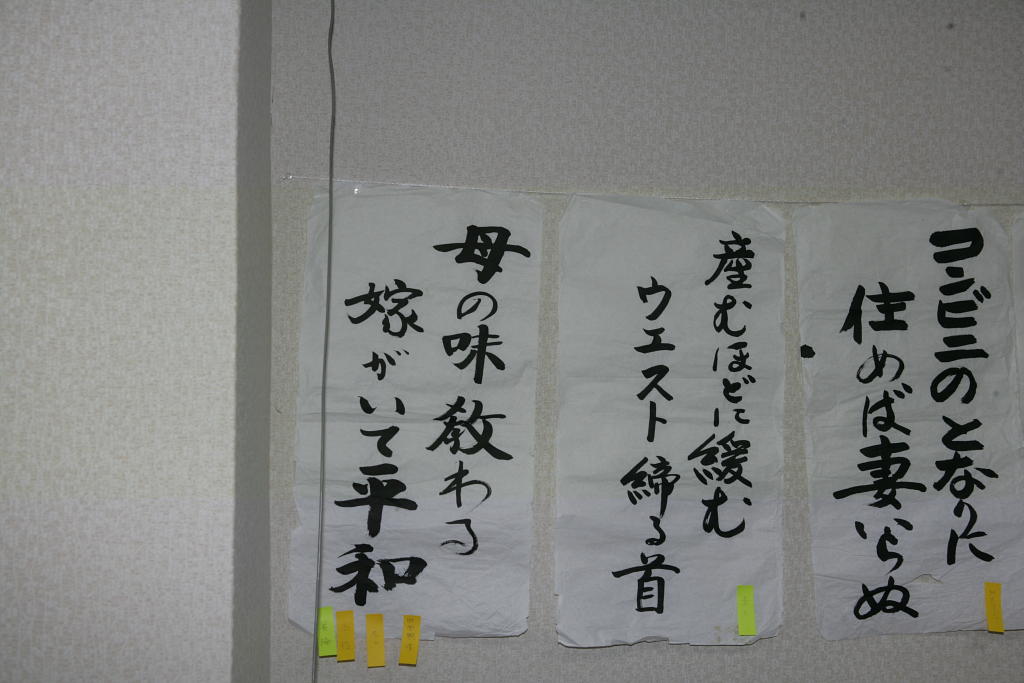 コンビニのとなりに
住めば妻いらぬ
産むほどに緩む
ウエスト締る首
母の味教わる
嫁がいて平和